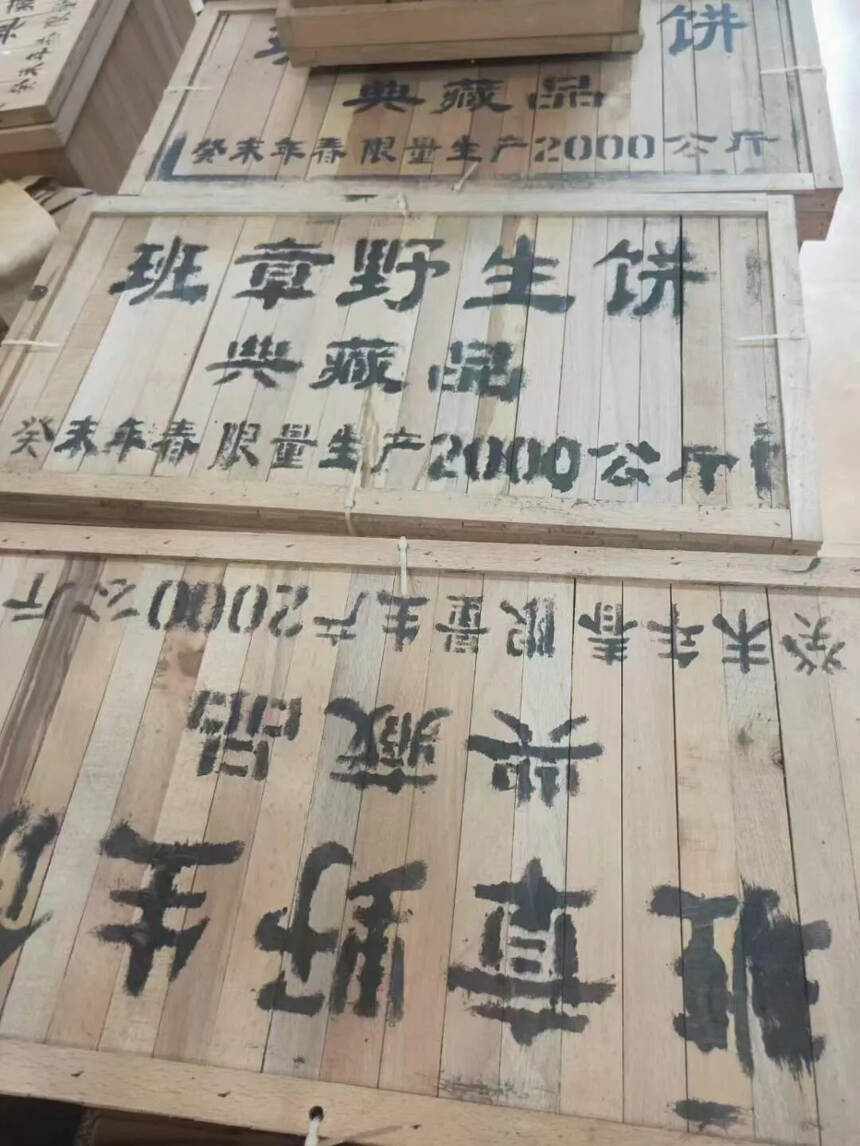 饼
典藏品
癸未年春限量生产2000公斤
班章野生饼
典藏品
癸未年春限量生产2000公斤
班章野生
典藏品
癸未年春限量生产2000公斤